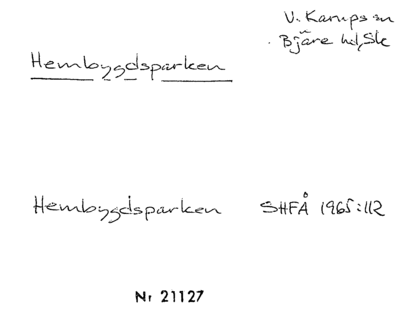 V. Karups sn
Bjäre hd, Sk
Hembygdsparken
Hembygdsparken SHFÅ 1965:112
Nr 21127